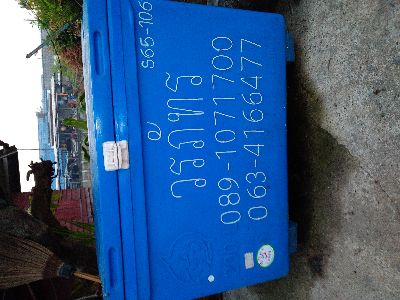 S65-106
วรภัทร
089-1071700
063-4166477